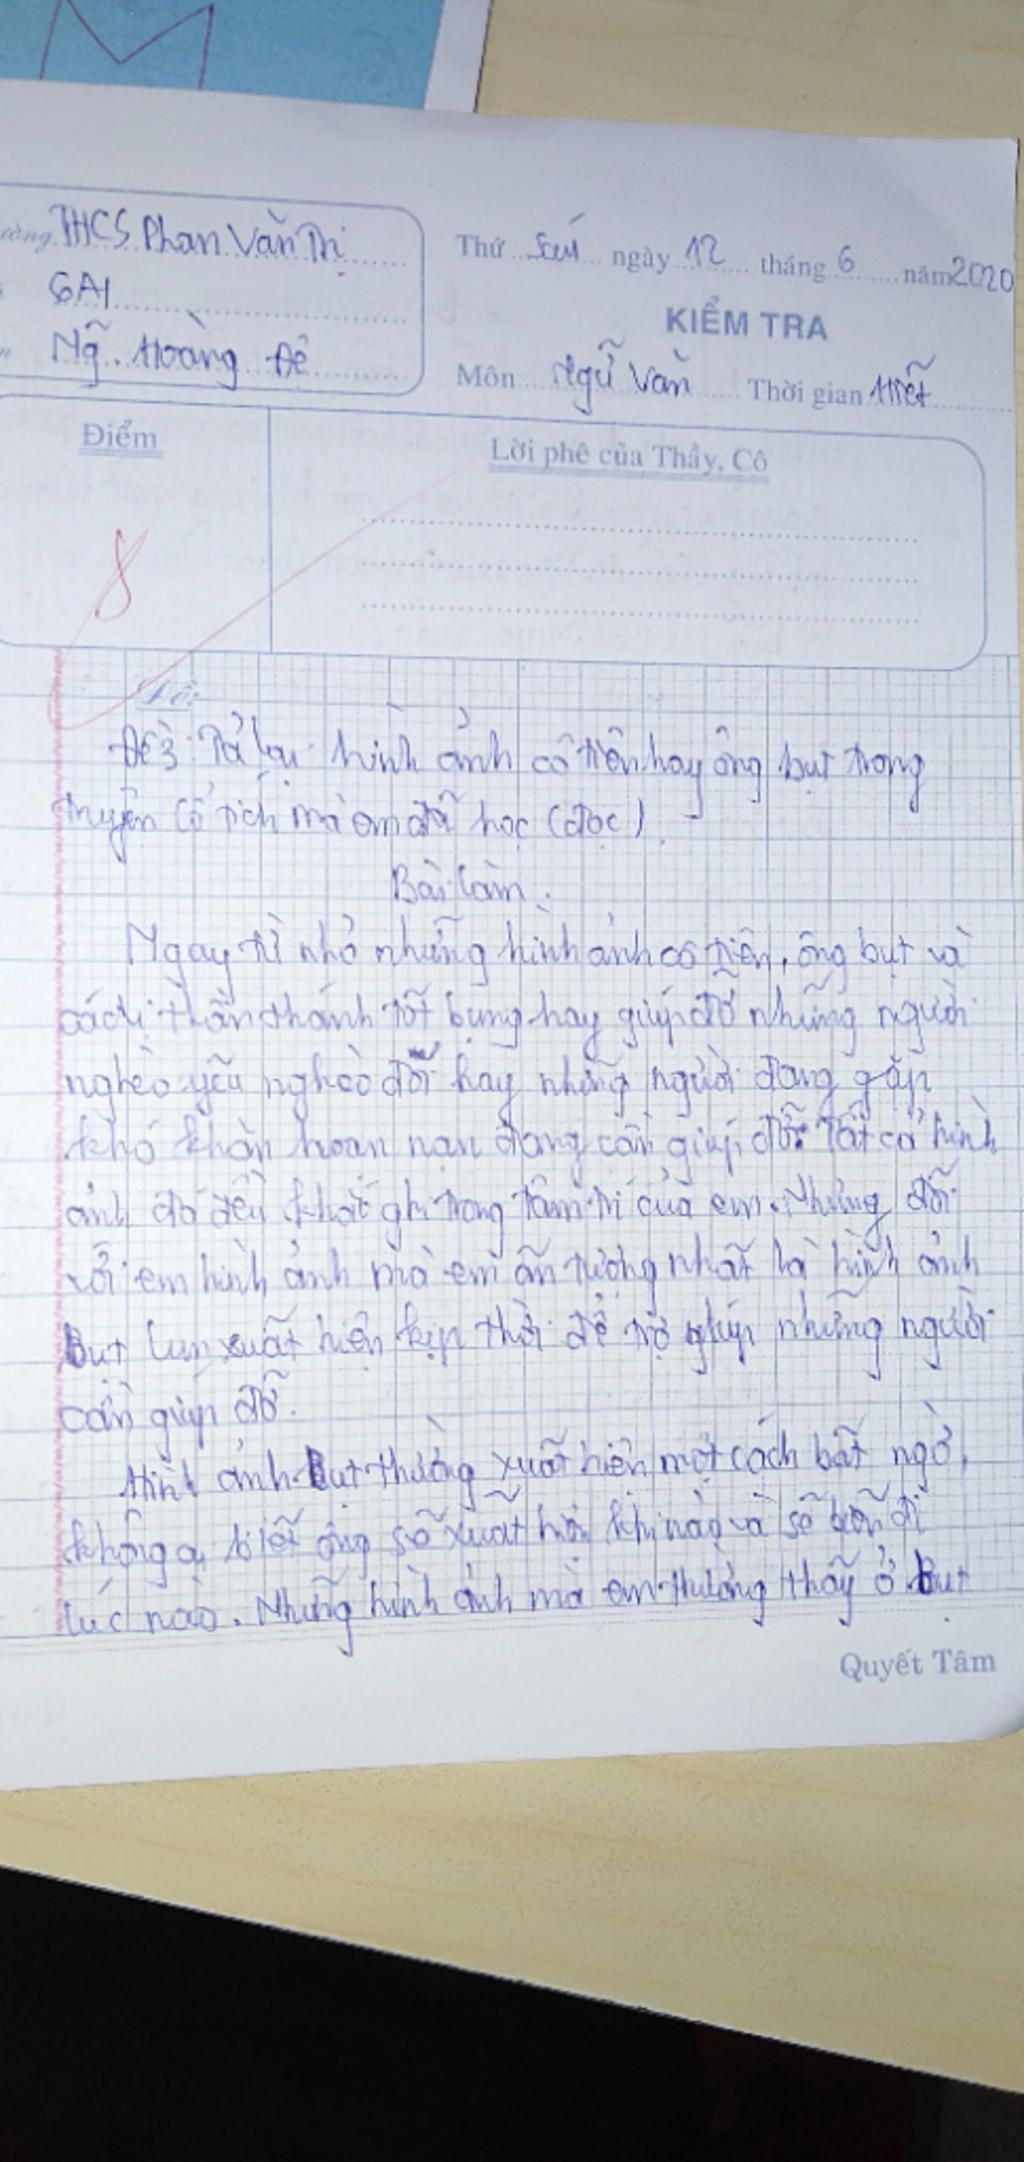 THCS Phan Văn Trị
6A1
Ng̃. Hoàng Đê
Thứ Sáu ngày 12 tháng 6 năm 2020
KIỂM TRA
Môn Ngữ Văn Thời gian 1 tiết
Điểm
Lời phê của Thầy, Cô
8
Đề:
Đề 3: Tả lại hình ảnh cô tiên hay ông bụt trong
truyện cổ tích mà em đã học (đọc).
Bài làm.
Ngay từ nhỏ những hình ảnh cô tiên, ông bụt và
các vị thần thánh tốt bụng hay giúp đỡ những người
nghèo yếu nghèo đói hay những người đang gặp
khó khăn hoạn nạn đang cần giúp đỡ. Tất cả hình
ảnh đó đều khắc ghi trong tâm trí của em. Nhưng đối
với em hình ảnh mà em ấn tượng nhất là hình ảnh
Bụt lun xuất hiện kịp thời để trợ giúp những người
cần giúp đỡ.
Hình ảnh Bụt thường xuất hiện một cách bất ngờ,
không ai biết ông sẽ xuất hiện khi nào và sẽ biến đi
lúc nào. Những hình ảnh mà em thường thấy ở Bụt
Quyết Tâm